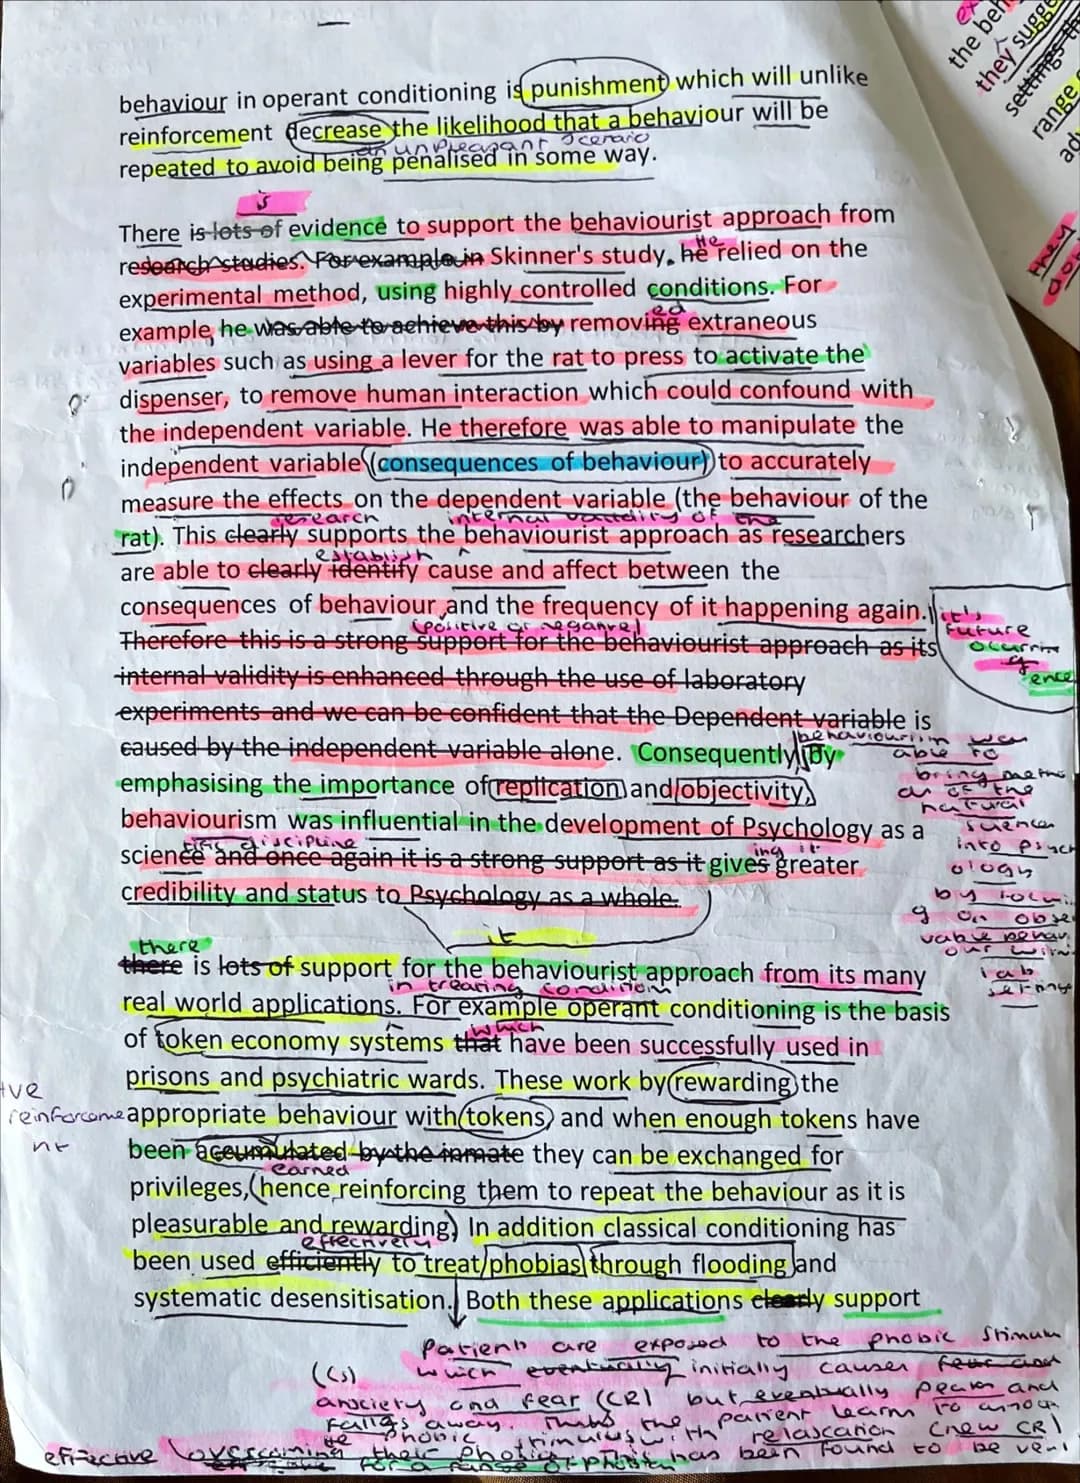 behaviour in operant conditioning is punishment which will unlike
reinforcement decrease the likelihood that a behaviour will be
an unpleasant scenario
repeated to avoid being penalised in some way.
is
There is lots of evidence to support the behaviourist approach from
research studies. For example in Skinner's study. he He relied on the
experimental method, using highly controlled conditions. For
ed
example, he was able to achieve this by removing extraneous
variables such as using a lever for the rat to press to activate the
dispenser, to remove human interaction which could confound with
the independent variable. He therefore was able to manipulate the
independent variable (consequences of behaviour) to accurately
measure the effects on the dependent variable (the behaviour of the
research internal validity of the
rat). This clearly supports the behaviourist approach as researchers
establish
are able to clearly identify cause and affect between the
consequences of behaviour and the frequency of it happening again.
(positive or negative)
it's
future
occurring
of
ence
Therefore this is a strong support for the behaviourist approach as its
internal validity is enhanced through the use of laboratory
experiments and we can be confident that the Dependent variable is
caused by the independent variable alone. Consequently, By
behaviourism was
able to
bring
of the
natural
into psych
ology
by
g on obse
vable behav
our
lab
settings
emphasising the importance of replication and objectivity,
behaviourism was influential in the development of Psychology as a
tific discipline
ing it
science and once again it is a strong support as it gives greater
credibility and status to Psychology as a whole.
it
there
there is lots of support for the behaviourist approach from its many
in treating conditions
real world applications. For example operant conditioning is the basis
which
of token economy systems that have been successfully used in
prisons and psychiatric wards. These work by rewarding the
+ve
reinforceme
nt
appropriate behaviour with tokens and when enough tokens have
been accumulated by the inmate they can be exchanged for
earned
privileges, (hence reinforcing them to repeat the behaviour as it is
pleasurable and rewarding) In addition classical conditioning has
effectively
been used efficiently to treat phobias through flooding and
systematic desensitisation. Both these applications clearly support
patients are exposed to the phobic stimulu
(CS) which eventually initially causes fear and
anxiety and fear (CR) but eventually peaks and
falls away. Thus the patient learn to
the phobic stimulus with relaxation (new CR)
effective overcoming their phobias This has been found to be very
for a range of phobias
the beh
they sugge
settings th
range
ad
they